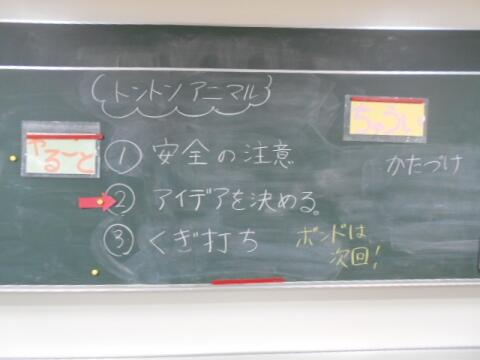 トントンアニマル
やる〜と
① 安全の注意
② アイデアを決める。
③ くぎ打ち
ボンドは
次回!
かたづけ